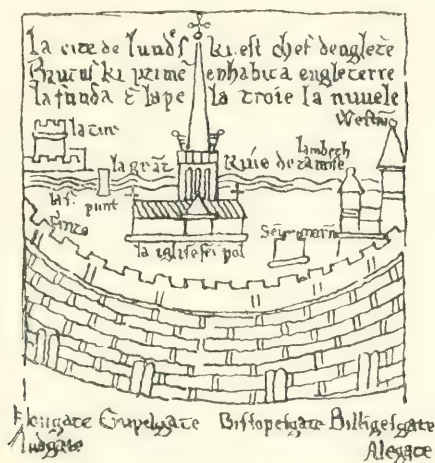 la cite de lund's ki est chef denglet̃e
Brutus ki prime enhabita engleterre
la funda ⁊ lape la troie la nuuele
Westm̃
la tur
lambeth
la grãt Riuie de tamise
punt
la iglise sei pol
Neugate Crupelgate Bissopesgate Billigesgate
Ludgate Alegate